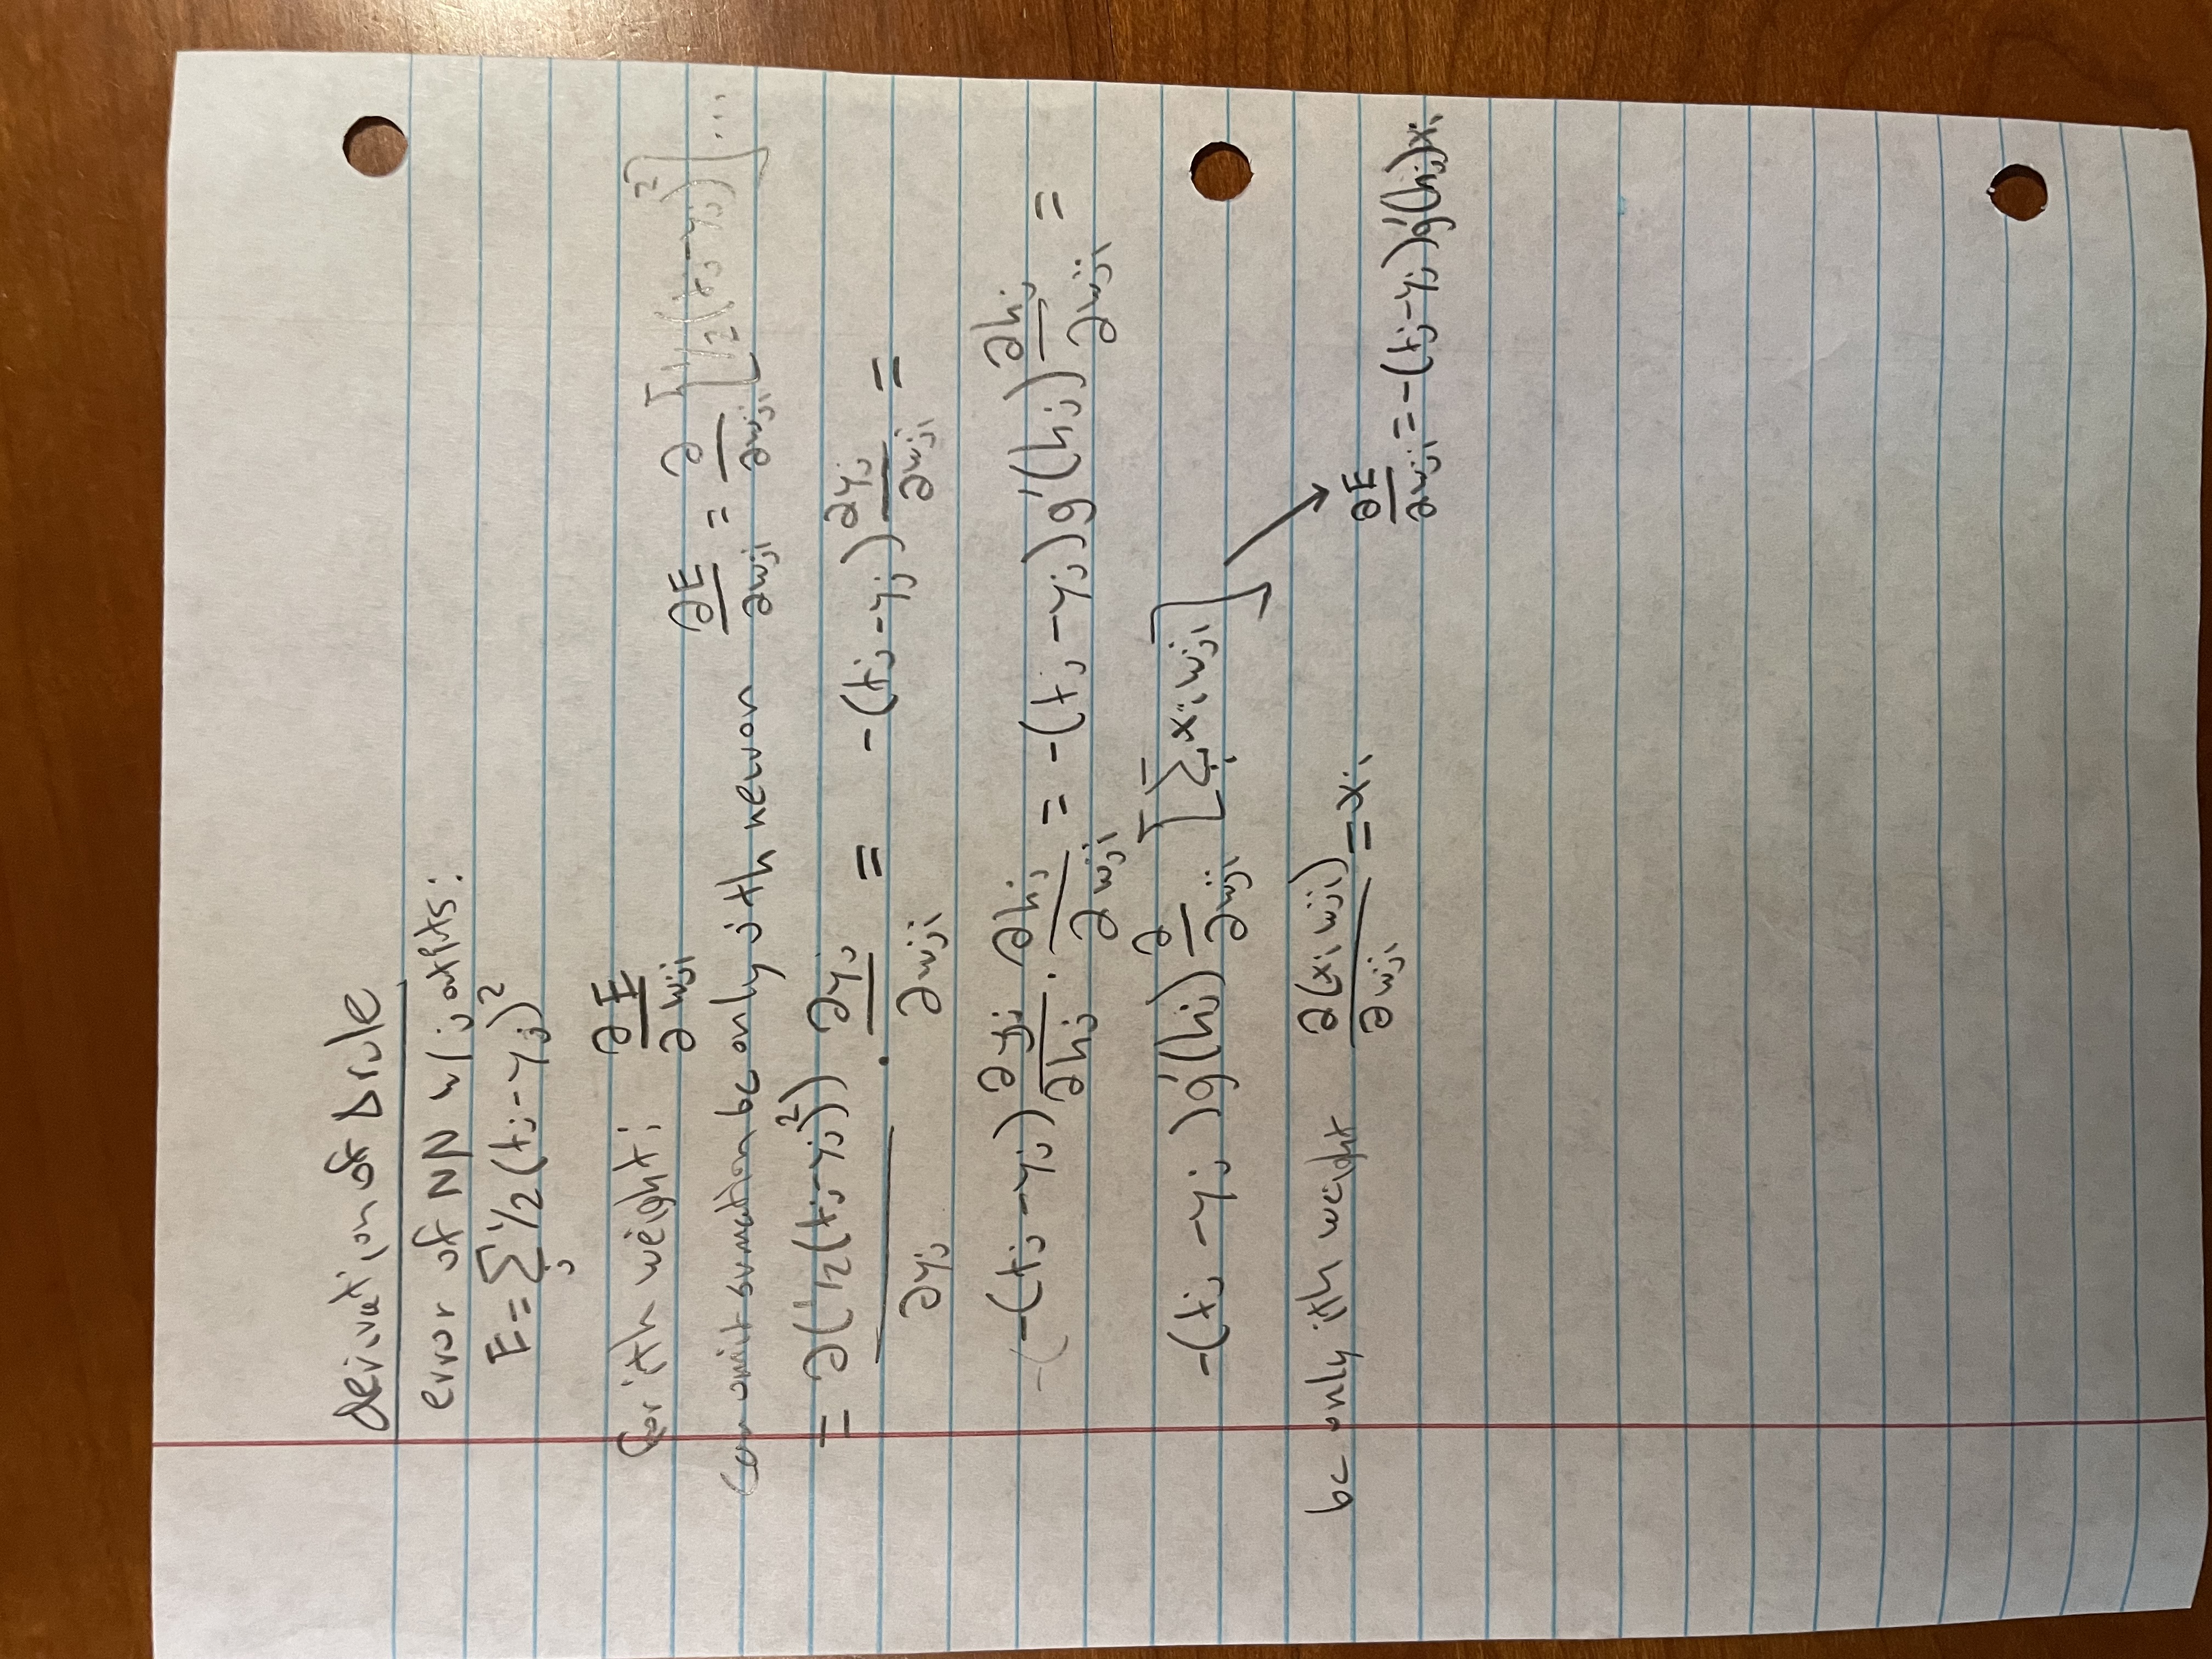 derivation of Δ rule
error of NN w/ j outputs:
E = ∑_j 1/2 (t_j - y_j)^2
for ith weight: ∂E/∂w_ji
can omit sumation bc only jth neuron ∂E/∂w_ji = ∂/∂w_ji [1/2 (t_j - y_j)^2] ...
= ∂(1/2 (t_j - y_j)^2)/∂y_j · ∂y_j/∂w_ji = -(t_j - y_j) ∂y_j/∂w_ji =
-(t_j - y_j) ∂y_j/∂h_j · ∂h_j/∂w_ji = -(t_j - y_j) g'(h_j) ∂h_j/∂w_ji =
-(t_j - y_j) g'(h_j) ∂/∂w_ji [∑_i x_i w_ji]
bc only ith weight ∂(x_i w_ji)/∂w_ji = x_i
∂E/∂w_ji = -(t_j - y_j) g'(h_j) x_i